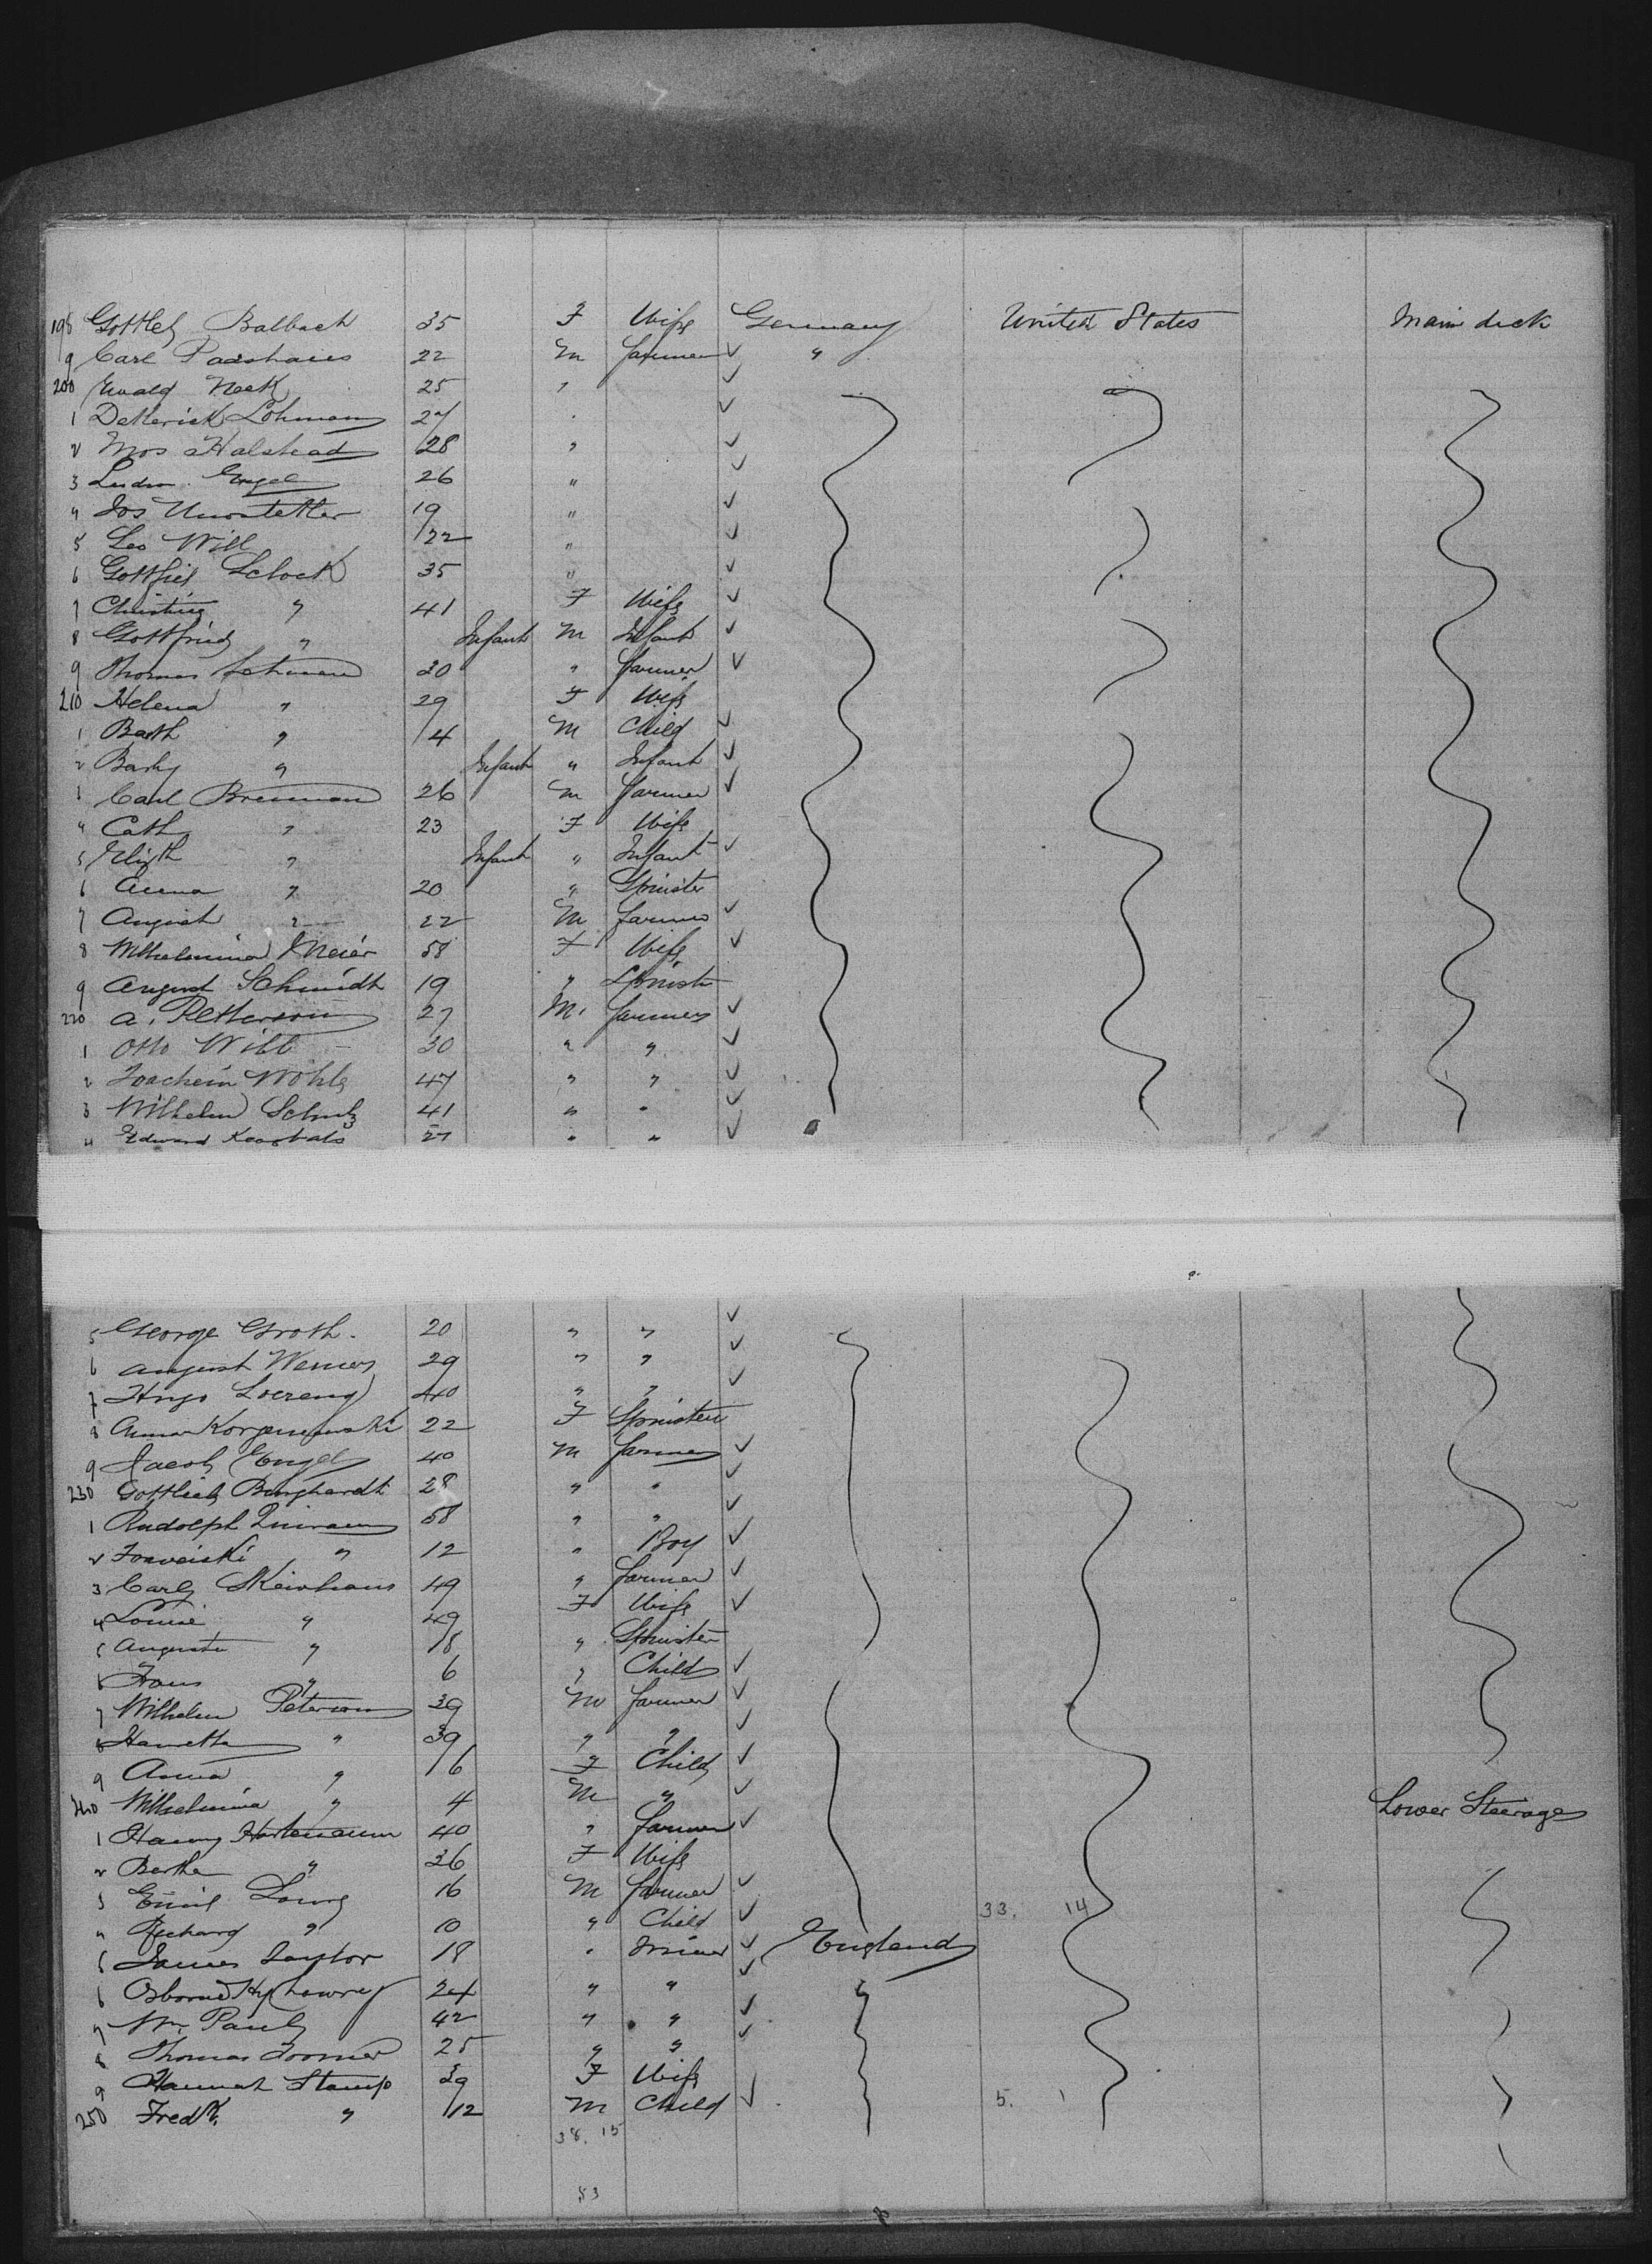 198 Gottlieb Balbach 35 F Wife Germany United States Main deck
9 Carl Paashaus 22 M farmer "
200 Ewald Neek 25 "
1 Detterick Lohmann 27 "
2 Mos Halstead 28 "
3 Engel 26 "
4 Jos 19 "
5 Leo Will 22 "
6 Gottfried Schock 35 "
7 Christine " 41 F Wife
8 Gottfried " Infant M Infant
9 Thomas Lehmann 30 " farmer
210 Helena " 29 F Wife
1 Barth " 4 M Child
2 " Infant " Infant
3 Carl Brennman 26 M farmer
4 Cath " 23 F Wife
5 Elizth " Infant " Infant
6 Anna " 20 " Spinster
7 August " 22 M farmer
8 Wilhelmina Meier 58 F Wife
9 August Schmidt 19 " Spinster
220 A. Petterson 27 M. farmer
1 Otto Witt 30 " "
2 Joachim Wohls 47 " "
3 Wilhelm Schulz 41 " "
4 Edward 27 " "
5 George Groth. 20 " "
6 August Werner 29 " "
7 Hugo Loereng 40 " "
8 Anna 22 F Spinster
9 Jacob Engel 40 M farmer
230 Gottlieb Burghardt 28 " "
1 Rudolph 58 " "
2 " 12 " Boy
3 Carl 49 " farmer
4 Louise " 49 F Wife
5 Auguste " 18 " Spinster
6 Hans " 6 " Child
7 Wilhelm Peterson 39 M farmer
8 " 39 " "
9 Anna " 6 F Child
240 Wilhelmina " 4 M " Lower Steerage
1 Hartmann 40 " farmer
2 Bertha " 36 F Wife
3 Emil 16 M farmer
4 Richard " 10 " Child 33. 14
5 James Saylor 18 " Miner England
6 Osborne 24 " "
7 Wm. Pauly 42 " "
8 Thomas Toomer 25 " "
9 Hannah Stamp 39 F Wife
250 Fredk. " 12 M Child 5. 1
38. 15
53